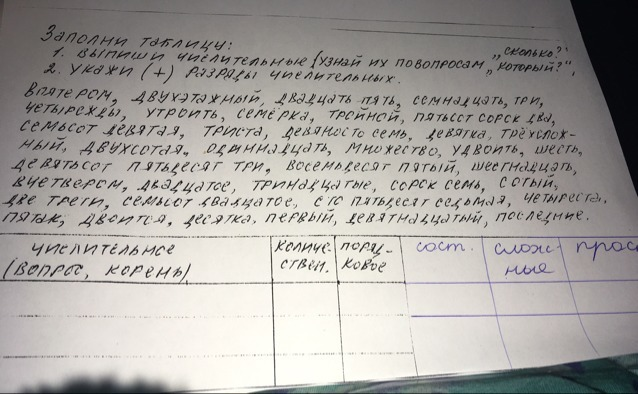 Заполни таблицу:
1. Выпиши числительные (узнай их по вопросам „сколько?"
2. Укажи (+) разряды числительных. „который?",
Впятером, двухэтажный, двадцать пять, семнадцать, три,
четырежды, утроить, семёрка, тройной, пятьсот сорок два,
семьсот девятая, триста, девяносто семь, девятка, трёхслож-
ный, двухсотая, одиннадцать, множество, удвоить, шесть,
девятьсот пятьдесят три, восемьдесят пятый, шестнадцать,
вчетвером, двадцатое, тринадцатые, сорок семь, сотый,
две трети, семьсот двадцатое, сто пятьдесят седьмая, четыреста,
пятак, двоится, десятка, первый, девятнадцатый, последние.
Числительное количе- поряд- сост. слож- прос
(вопрос, корень) ствен. ковое ные